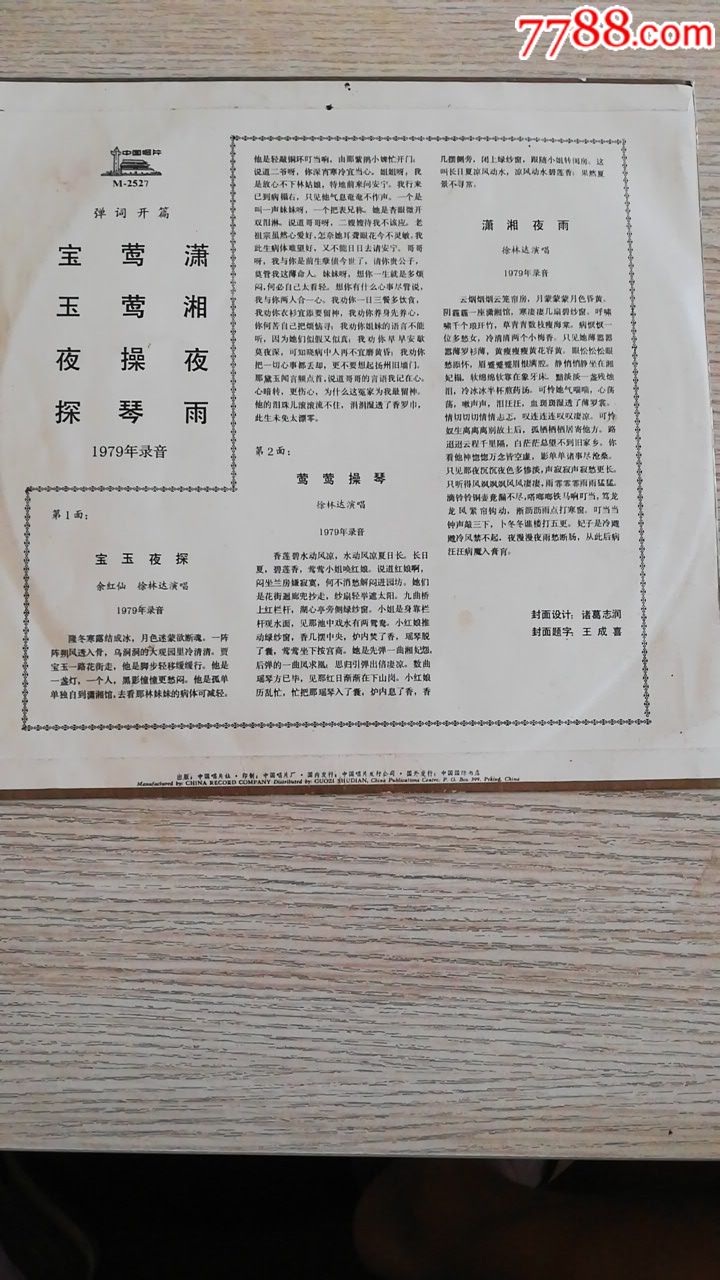 7788.com
中国唱片
M-2527
弹词开篇
潇湘夜雨
莺莺操琴
宝玉夜探
1979年录音
第1面：
宝玉夜探
余红仙 徐林达演唱
1979年录音
隆冬寒露结成冰，月色迷蒙欲断魂。一阵
阵朔风透入骨，乌洞洞的大观园里冷清清。贾
宝玉一路花街走，他是脚步轻移缓缓行。他是
一盏灯，一个人，黑影憧憧更愁闷。他是孤单
单独自到潇湘馆，去看那林妹妹的病体可减轻。
他是轻敲铜环叮当响，由那紫鹃小婢忙开门；
说道二爷呀，你深宵寒冷宜当心。姐姐呀，我
是放心不下林姑娘，特地前来问安宁。我行来
已到病榻右，只见他气息奄奄不作声。一个是
叫一声妹妹呀，一个把表兄称。她是杏眼微开
双泪淋。说道哥哥呀，二嫂嫂待我不该应。老
祖宗虽然心爱好，怎奈她耳聋眼花今不灵敏。我
此生病体难望好，又不能日日去请安宁。哥哥
呀，我与你是前生孽债今世了，请你贵公子，
莫管我这薄命人。妹妹呀，想你一生就是多烦
闷，何必自己太看轻。想你有什么心事尽管说，
我与你两人合一心。我劝你一日三餐多饮食，
我劝你衣衫宜添要留神，我劝你养身先养心，
你何苦自己把烦恼寻；我劝你姐妹的语言不能
听，因为她们似假又似真；我劝你早早安歇
莫夜深，可知晓病中人再不宜磨黄昏；我劝你
把一切心事都丢却，更不要想起扬州旧墙门。
那黛玉闻言频点首，说道哥哥的言语我记在心。
心暗转，更伤心，为什么这冤家为我最留神。
他的泪珠儿滚滚流不住，涓涓湿透了香罗巾，
此生未免太漂零。
第2面：
莺莺操琴
徐林达演唱
1979年录音
香莲碧水动风凉，水动风凉夏日长。长日
夏，碧莲香，莺莺小姐唤红娘。说道红娘啊，
闷坐兰房嫌寂寞，何不消愁解闷进园坊。她们
是花街迴廊兜抄走，纱扇轻举遮太阳。九曲桥
上红栏杆，湖心亭旁侧绿纱窗。小姐是身靠栏
杆观水面，见那池中戏水有两鸳鸯。小红娘推
动绿纱窗，香几摆中央，炉内焚了香，瑶琴脱
了囊，莺莺坐下按宫商。她是先弹一曲湘妃怨，
后弹的一曲凤求凰。思归引弹出倍凄凉。数曲
瑶琴方已毕，见那红日渐渐在下山岗。小红娘
历乱忙，忙把那瑶琴入了囊，炉内息了香，香
几摆侧旁，闭上绿纱窗，跟随小姐转闺房。这
叫长日夏凉风动水，凉风动水碧莲香；果然夏
景不寻常。
潇湘夜雨
徐林达演唱
1979年录音
云烟烟烟云笼帘房，月蒙蒙蒙月色昏黄。
阴霾霾一座潇湘馆，寒凄凄几扇碧纱窗。呼啸
啸千个琅玕竹，草青青数枝瘦海棠。病恹恹一
位多愁女，冷清清两个小梅香。只见她薄嚣
嚣薄罗衫薄，黄瘦瘦瘦黄花容黄。眼忪忪忪眼
愁添怀，眉蹙蹙蹙眉恨满腔。静悄悄静坐在湘
妃榻，软绵绵软靠在象牙床。黯淡淡一盏残烛
泪，冷冰冰半杯煎药汤。可怜她气喘喘，心荡
荡，嗽声声，泪汪汪，血斑斑湿透了薄罗裳。
情切切切情情忐忑，叹连连连叹叹凄凉。可怜
奴生离离离别故土后，孤栖栖栖居寄他方。路
迢迢云程千里隔，白茫茫总望不到旧家乡。你
看他神惚惚万念皆空虚，影单单诸事尽沧桑。
只见那夜沉沉夜色多惨淡，声寂寂声寂愁更长。
只听得风飒飒飒风风凄凄，雨零零零雨雨猛猛。
滴铃铃铜壶竟漏不尽，嗒啷啷铁马响叮当，笃龙
龙风紧帘钩动，淅沥沥雨点打寒窗。叮当当
钟声敲三下，卜冬冬谯楼打五更。妃子是冷飕
飕冷风禁不起，夜漫漫夜雨愁断肠，从此后病
汪汪病魔入膏肓。
封面设计：诸葛志润
封面题字：王成喜
出版：中国唱片社·印制：中国唱片厂·国内发行：中国唱片发行公司·国外发行：中国国际书店
Manufactured by: CHINA RECORD COMPANY Distributed by: GUOZI SHUDIAN, China Publications Centre, P. O. Box 399, Peking, China